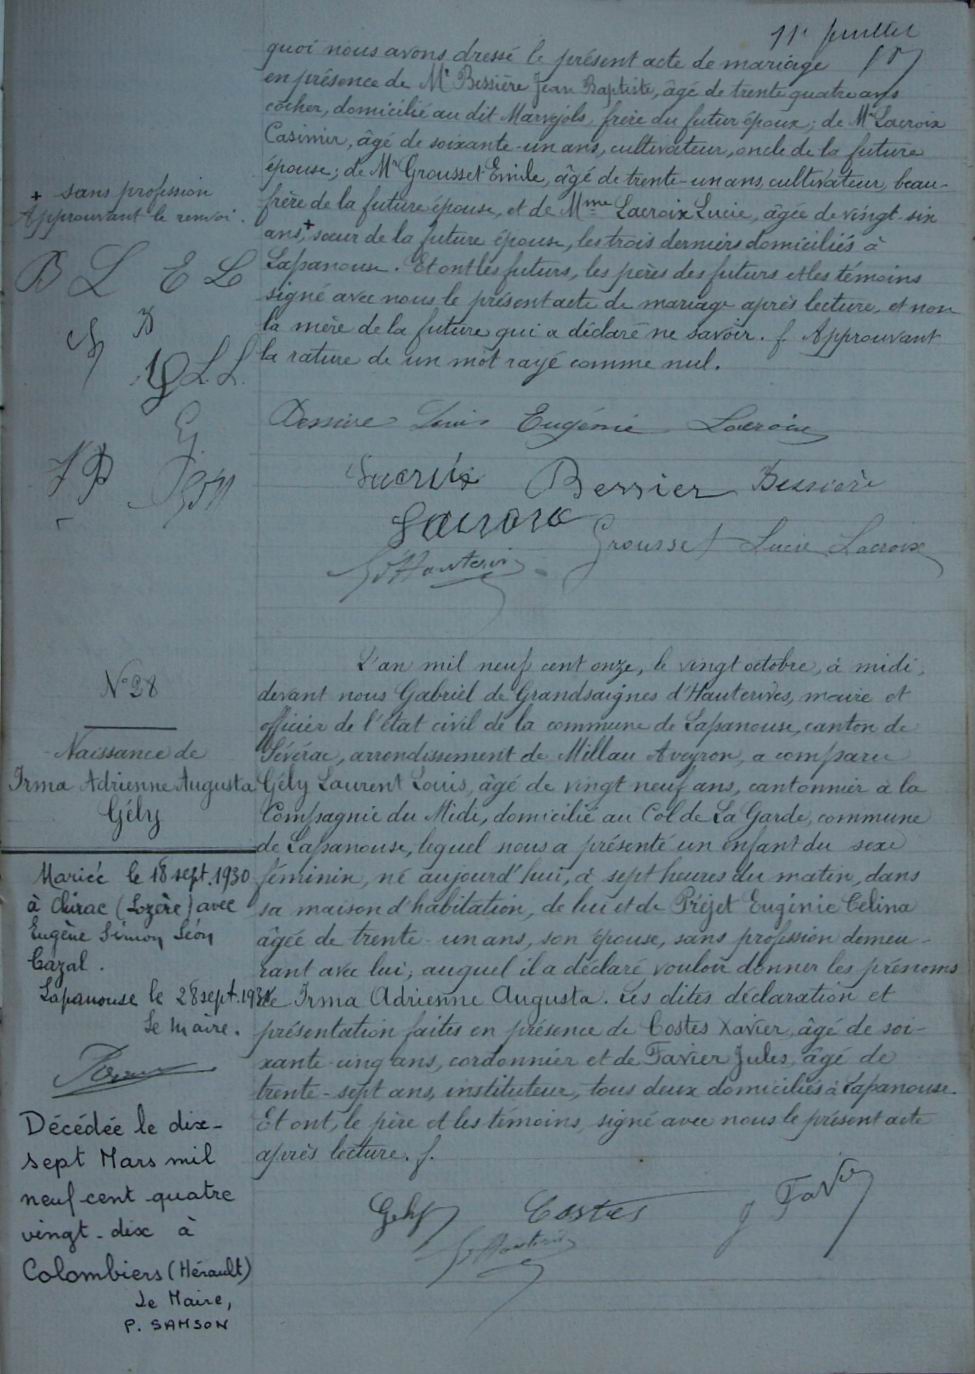 11e juillet
quoi nous avons dressé le présent acte de mariage
en présence de Mr Bessière Jean Baptiste, âgé de trente quatre ans
cocher, domicilié au dit Marvejols, frère du futur époux; de Mr Lacroix
Casimir, âgé de soixante-un ans, cultivateur, oncle de la future
épouse; de Mr Grousset Emile, âgé de trente-un ans, cultivateur, beau-
frère de la future épouse, et de Mme Lacroix Lucie, âgée de vingt-six
ans,+ sœur de la future épouse, les trois derniers domiciliés à
Lapanouse. Et ont les futurs, les pères des futurs et les témoins
signé avec nous le présent acte de mariage après lecture, et non
la mère de la future qui a déclaré ne savoir. f Approuvant
la rature de un mot rayé comme nul.
+ sans profession
Approuvant le renvoi.
B L E L
B
L L
Bessière Louis Eugénie Lacroix
Lacroix Bessier Bessière
Lacroix Grousset Lucie Lacroix
d'Hauterives
N° 28
Naissance de
Irma Adrienne Augusta
Gély
L'an mil neuf cent onze, le vingt octobre, à midi,
devant nous Gabriel de Grandsaignes d'Hauterives, maire et
officier de l'état civil de la commune de Lapanouse, canton de
Sévérac, arrondissement de Millau Aveyron, a comparu
Gély Laurent Louis, âgé de vingt neuf ans, cantonnier à la
Compagnie du Midi, domicilié au Col de La Garde, commune
de Lapanouse, lequel nous a présenté un enfant du sexe
féminin, né aujourd'hui, à sept heures du matin, dans
sa maison d'habitation, de lui et de Préjet Eugénie Celina
âgée de trente-un ans, son épouse, sans profession demeu-
rant avec lui; auquel il a déclaré vouloir donner les prénoms
de Irma Adrienne Augusta. Les dites déclaration et
présentation faites en présence de Costes Xavier, âgé de soi-
xante-cinq ans, cordonnier et de Favier Jules, âgé de
trente-sept ans, instituteur, tous deux domiciliés à Lapanouse.
Et ont, le père et les témoins, signé avec nous le présent acte
après lecture. f.
Gély Costes J Favier
d'Hauterives
Mariée le 18 sept. 1930
à Chirac (Lozère) avec
Eugène Simon Léon
Cazal.
Lapanouse le 28 sept. 193
Le Maire.
Décédée le dix-
sept Mars mil
neuf cent quatre
vingt-dix à
Colombiers (Hérault)
Le Maire,
P. SAMSON